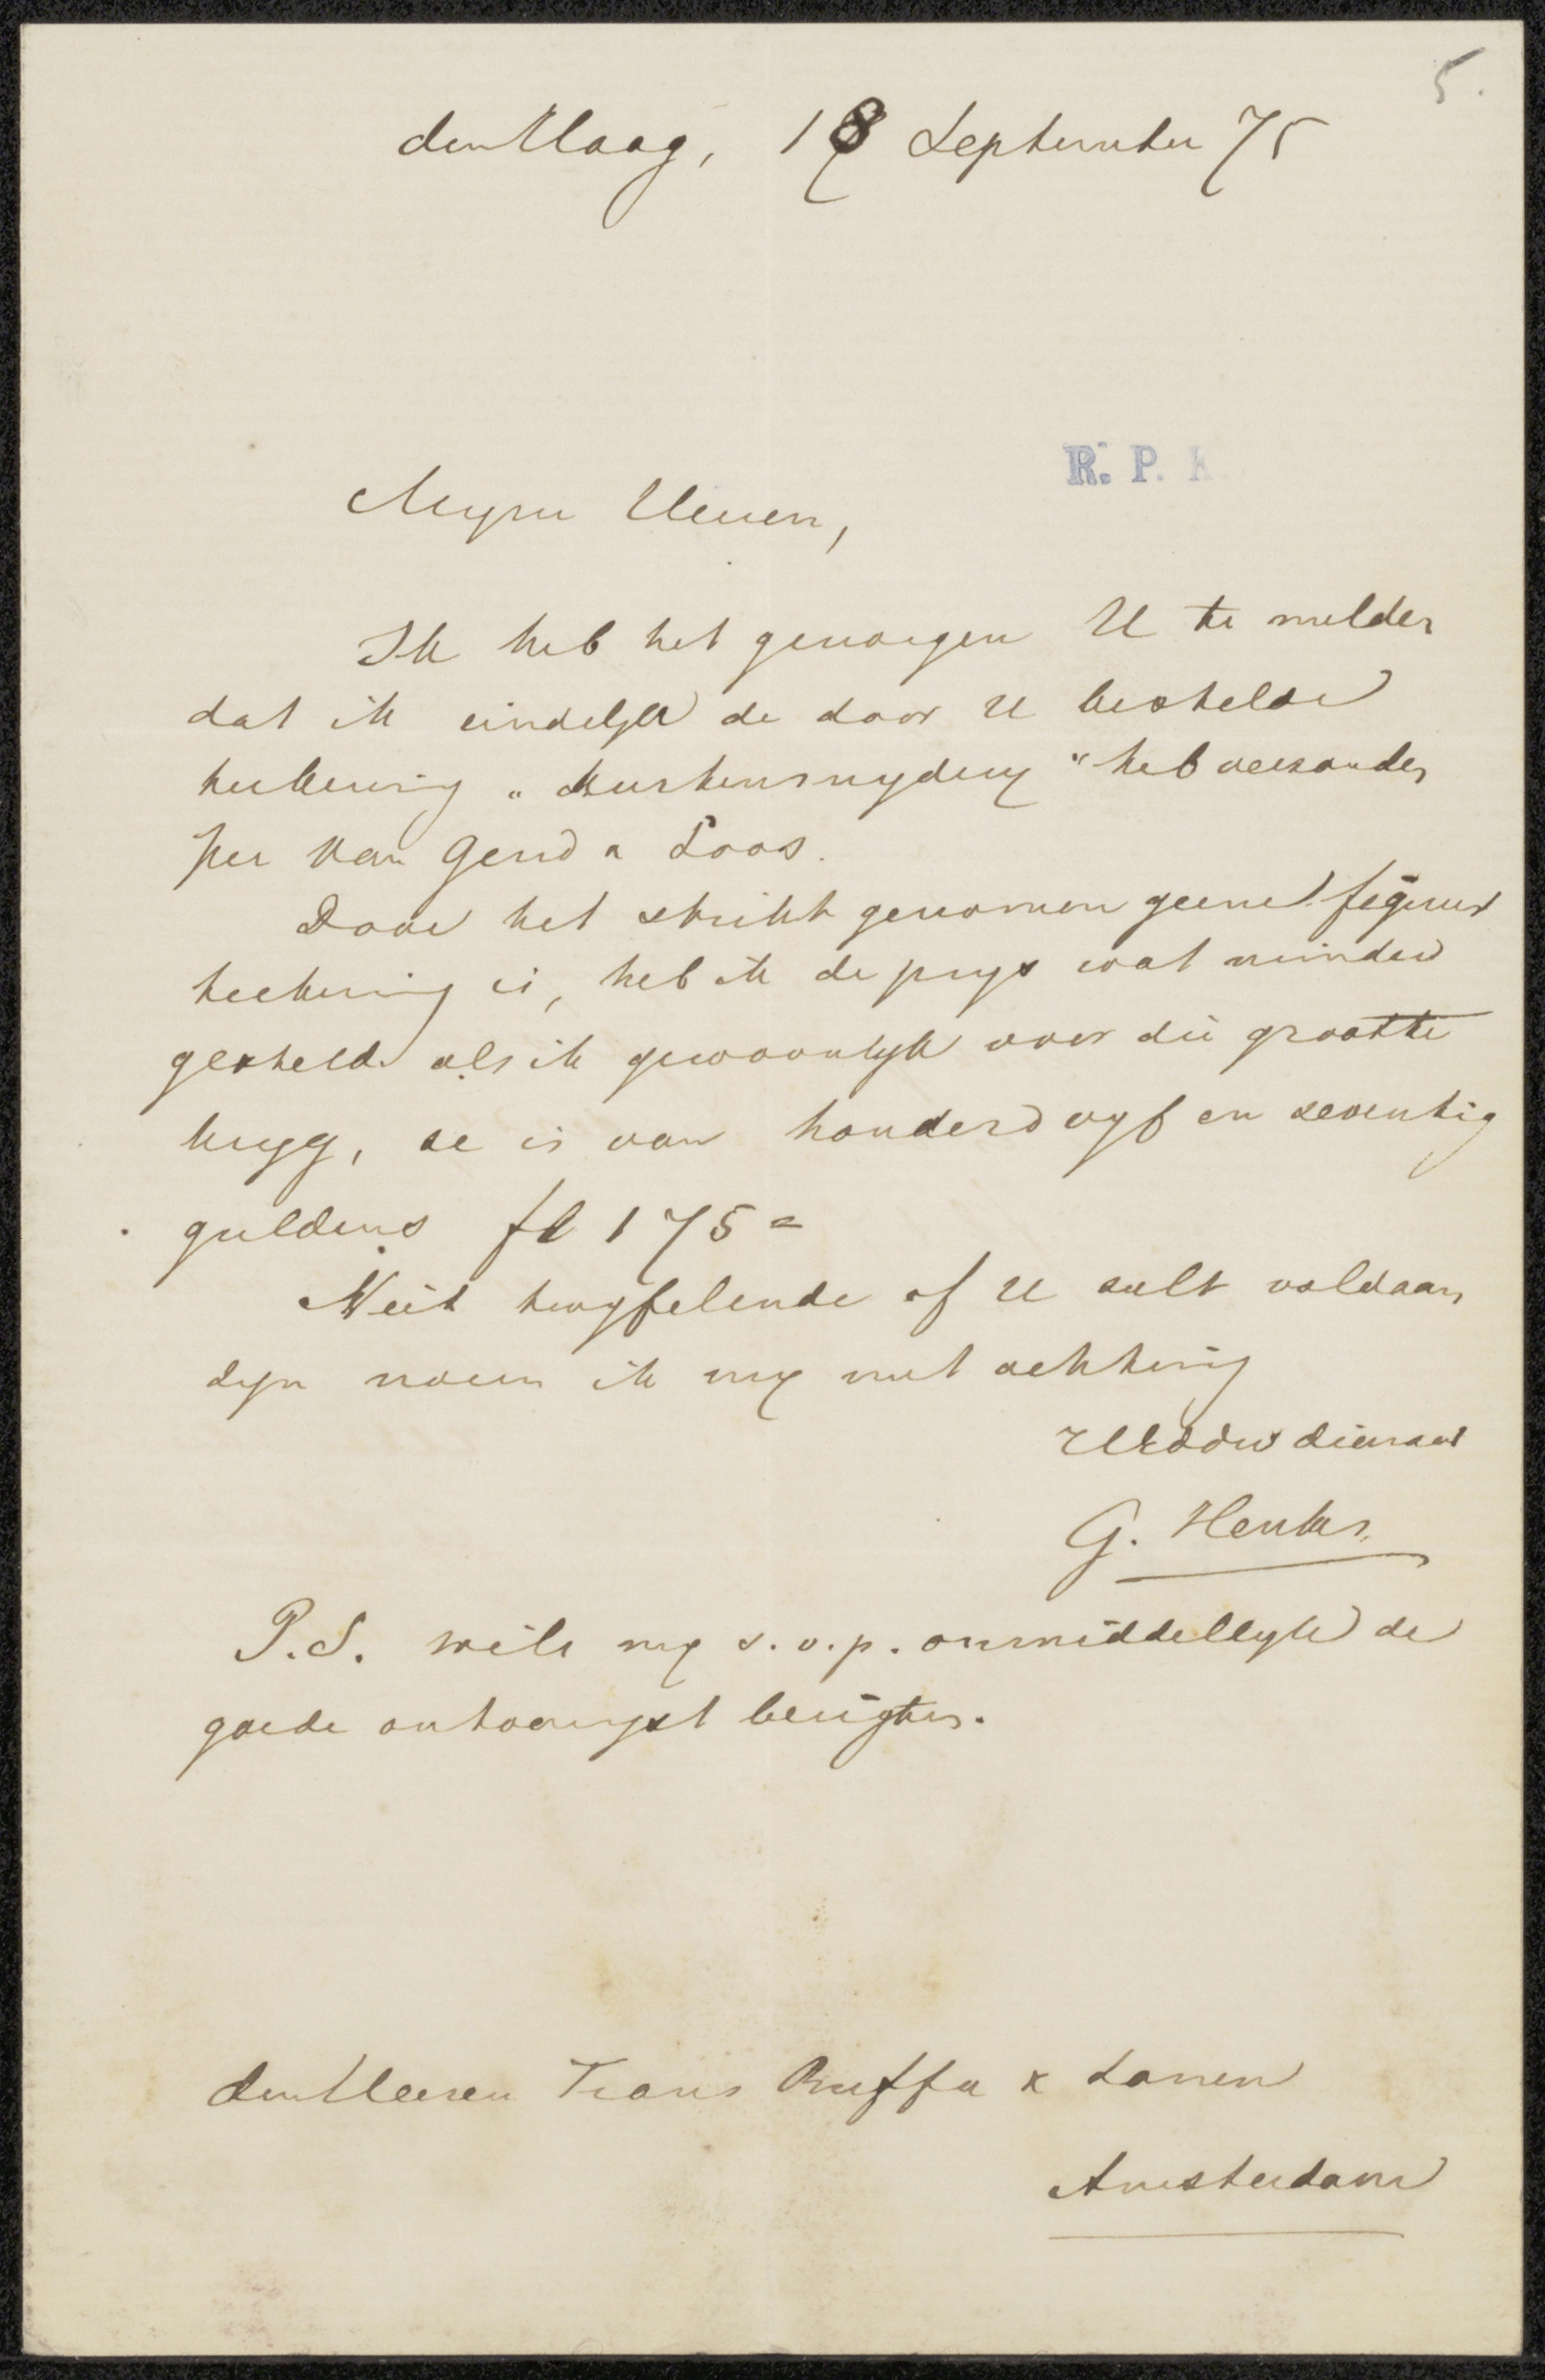 5.
den Haag, 18 September 75
R. P. K.
Mijne Heeren,
Ik heb het genoegen U te melden
dat ik eindelyk de door U bestelde
teekening „Kurkensnyders" heb verzonden
per van Gend & Loos.
Daar het strikt genomen geene figuur
teekening is, heb ik de prys wat minder
gesteld als ik gewoonlyk voor die grootte
kryg, ze is van honderd vyf en zeventig
guldens fl 175 =
Niet twyfelende of U zult voldaan
zyn noem ik my met achting
UEd dw dienaar
G. Henkes.
P.S. wilt my s.v.p. onmiddellyk de
goede ontvangst berigten.
den Heeren Frans Buffa & Zonen
Amsterdam